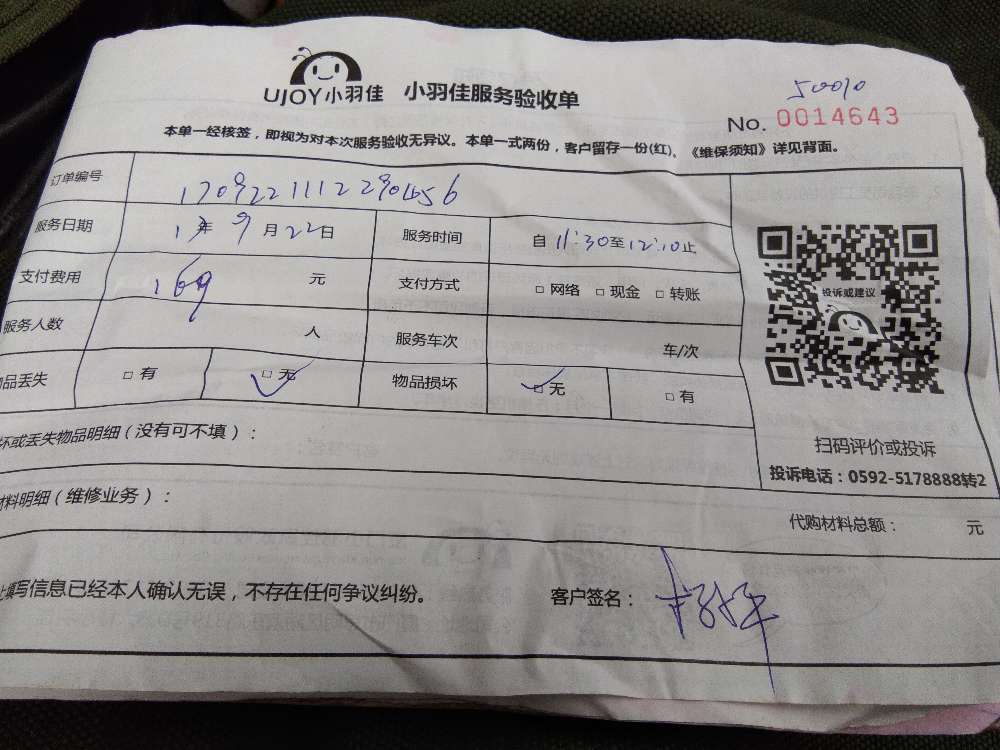 UJOY小羽佳 小羽佳服务验收单
50010
No. 0014643
本单一经核签，即视为对本次服务验收无异议。本单一式两份，客户留存一份(红)、《维保须知》详见背面。
订单编号
服务日期 17年 9月22日 服务时间 自 11:30 至 12:10 止
支付费用 169 元 支付方式 □ 网络 □ 现金 □ 转账
服务人数 人 服务车次 车/次
品丢失 □ 有 □ 无 物品损坏 □ 无 □ 有
投诉或建议
扫码评价或投诉
投诉电话：0592-5178888转2
坏或丢失物品明细（没有可不填）：
材料明细（维修业务）： 代购材料总额： 元
上填写信息已经本人确认无误，不存在任何争议纠纷。 客户签名：